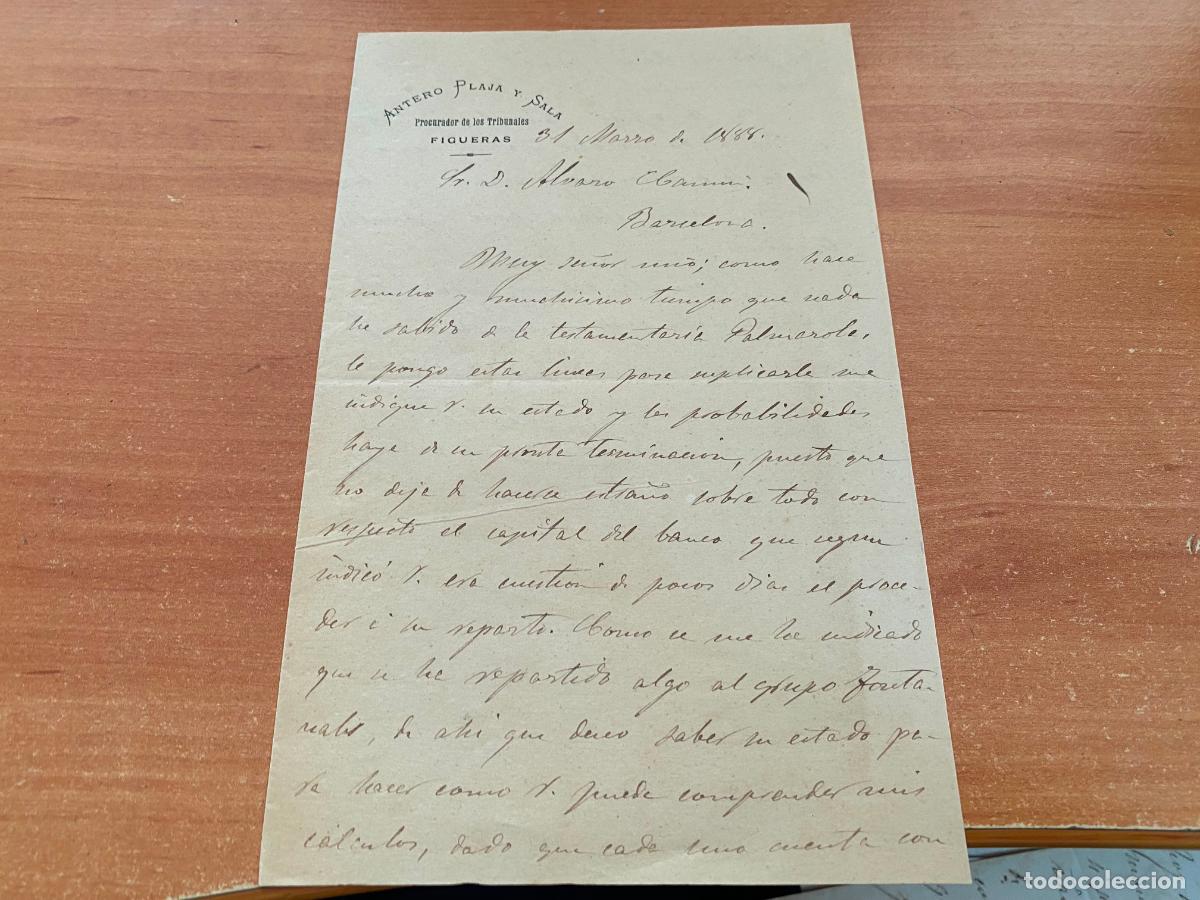 ANTERO PLAJA Y SALA
Procurador de los Tribunales
FIGUERAS
31 Marzo de 1888.
Sr. D. Alvaro
Barcelona.
Muy señor mio; como hace
mucho y muchisimo tiempo que nada
he sabido de la testamentaria Palmarola,
le pongo estas lineas para suplicarle me
indique V. su estado y las probabilidades
haya de su pronta terminacion, puesto que
no deja de hacerse estraño sobre todo con
respecto al capital del banco que segun
indicó V. era cuestion de pocos dias el proce-
der á su reparto. Como se me ha indicado
que se ha repartido algo al grupo Fonta-
nals, de ahi que deseo saber su estado pa-
ra hacer como V. puede comprender mis
cálculos, dado que cada uno cuenta con
todocoleccion